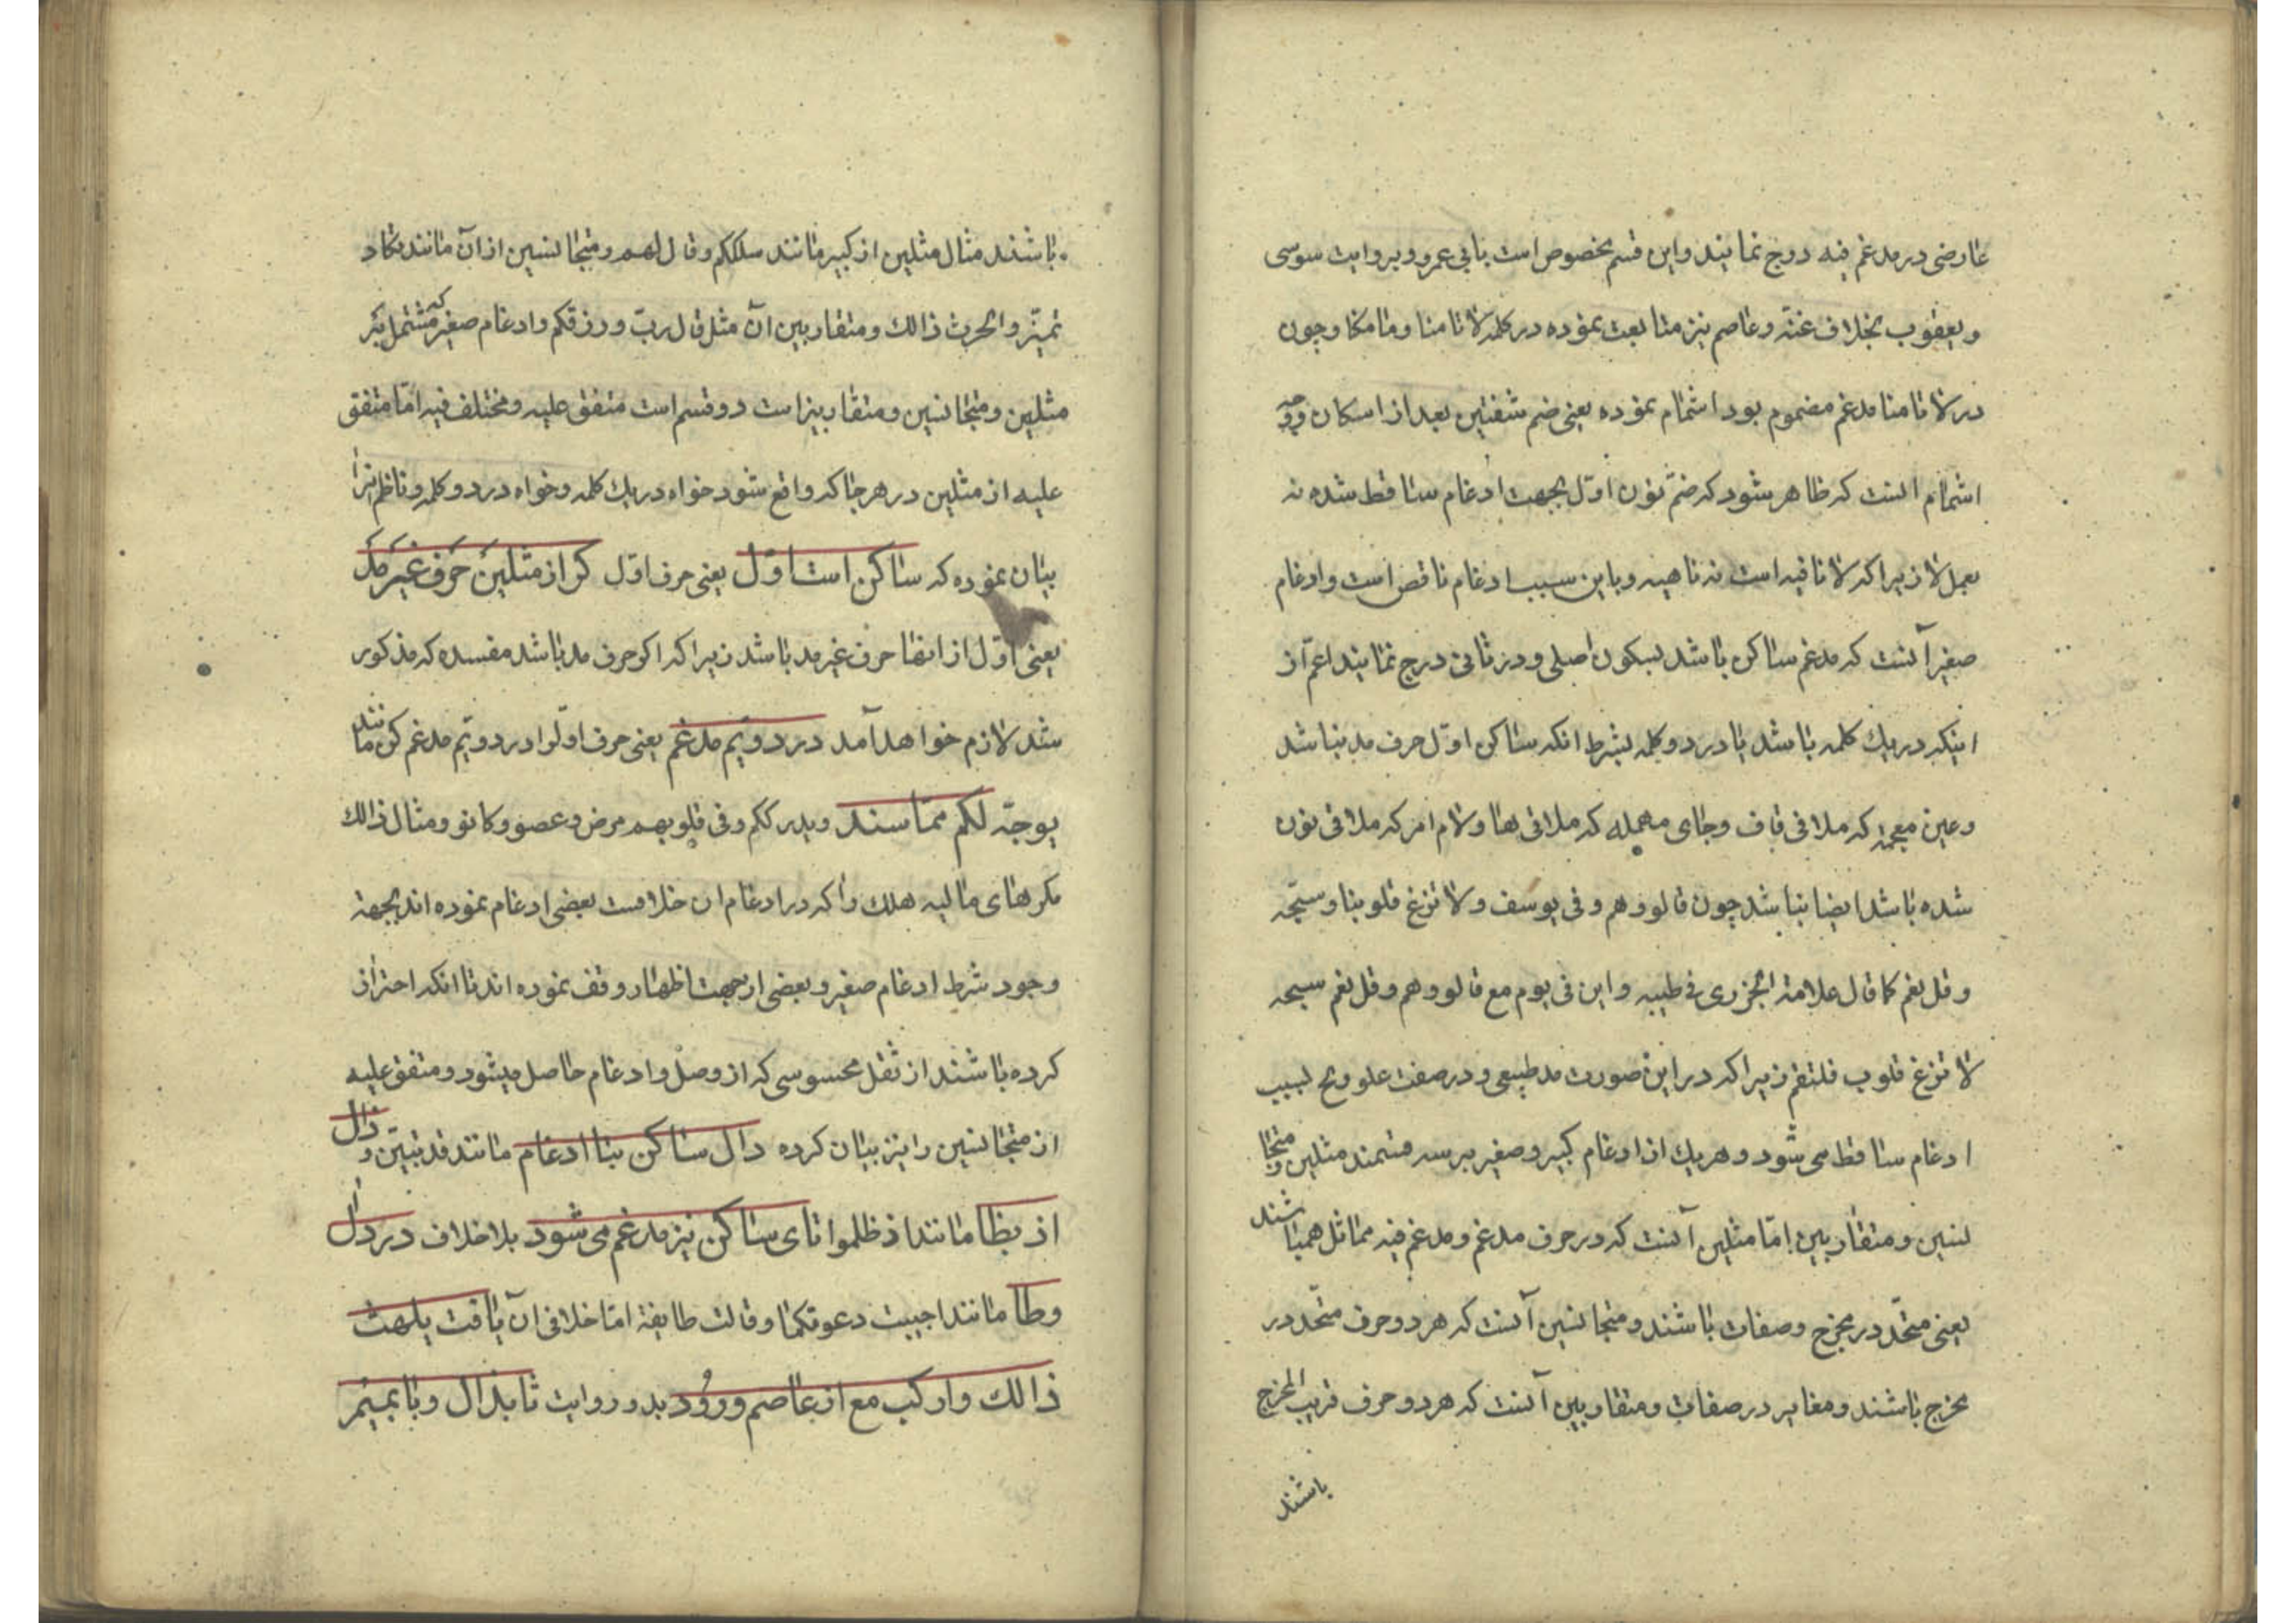 عارضی در مدغم فیه دوج نمایند و این قسم مخصوص است بابی عمرو و بروایت سوسی
و یعقوب بخلاف عنه و عاصم نیز متابعت نموده در کلمه لا تامنا و ما مکنا و چون
در لا تامنا مدغم مضموم بود اشمام نموده یعنی ضم شفتین بعد از اسکان و وجه
اشمام انست که ظاهر شود که ضم نون اول بجهت ادغام ساقط شده نه
بعمل لا زیرا که لا نافیه است نه ناهیه و باین سبب ادغام ناقص است و ادغام
صغیر آنست که مدغم ساکن باشد بسکون اصلی و در ثانی درج نمایند اعم از
اینکه در یك کلمه باشد یا در دو کلمه بشرط انکه ساکن اول حرف مد نباشد
و عین معجمه که ملاقی قاف و حای مهمله که ملاقی ها و لام امر که ملاقی نون
شده باشد ایضا نباشد چون قالو و هم و فی یوسف و لا تزغ قلوبنا و سبّحه
و قل نعم کما قال علامة الجزری فی طیبه و ابن فی یوم مع قالو و هم و قل نعم سبحه
لا تزغ قلوب فلتقم زیرا که در این صورت مد طبیعی و در صفت علو و بسبب
ادغام ساقط می شود و هریك از ادغام کبیر و صغیر بر سه قسمند مثلین و متجا
نسین و متقاربین اما مثلین آنست که در حرف مدغم و مدغم فیه مماثل هم باشند
یعنی متحد در مخرج و صفات باشند و متجانسین آنست که هر دو حرف متحد در
مخرج باشند و مغایر در صفات و متقاربین آنست که هر دو حرف قریب المخرج
باشند
باشند مثال مثلین از کبیر مانند سللکم و قال لهم و متجانسین از ان مانند تکاد
تمیّز و الحرث ذالك و متقاربین ان مثل قال ربّ و رزقکم و ادغام صغیر که مشتمل بر
مثلین و متجانسین و متقاربین است دو قسم است متفق علیه و مختلف فیه اما متفق
علیه از مثلین در هر جا که واقع شود خواه در یك کلمه و خواه در دو کلمه و ناظم انرا
بیان نموده که ساکن است اول یعنی حرف اول کر از مثلین حرف غیر مد
یعنی اول از انها حرف غیر مد باشد زیرا که اکر حرف مد باشد مفسده که مذکور
شد لازم خواهد آمد در دویم مدغم یعنی حرف اول را در دویم مدغم کن مانند
یوجّه لکم مما سند و یدرککم و فی قلوبهم مرض و عصو و کانو و مثال ذالك
مکر های مالیه هلك را که در ادغام ان خلافست بعضی ادغام نموده اند بجهة
وجود شرط ادغام صغیر و بعضی از جهت اظهار وقف نموده اند تا انکه احتراز
کرده باشند از ثقل محسوسی که از وصل و ادغام حاصل میشود و متفق علیه
از متجانسین را نیز بیان کرده دال ساکن بتا ادغام مانند قد تبیّن و ذال
از بظا مانند اذ ظلموا تای ساکن نیز مدغم می شود بلا خلاف در دال
و طا مانند اجیبت دعوتکما و قالت طایفة اما خلافی ان یافت یلهث
ذالك و ارکب مع از عاصم ورود بدو روایت ثا بذال و با بمیم